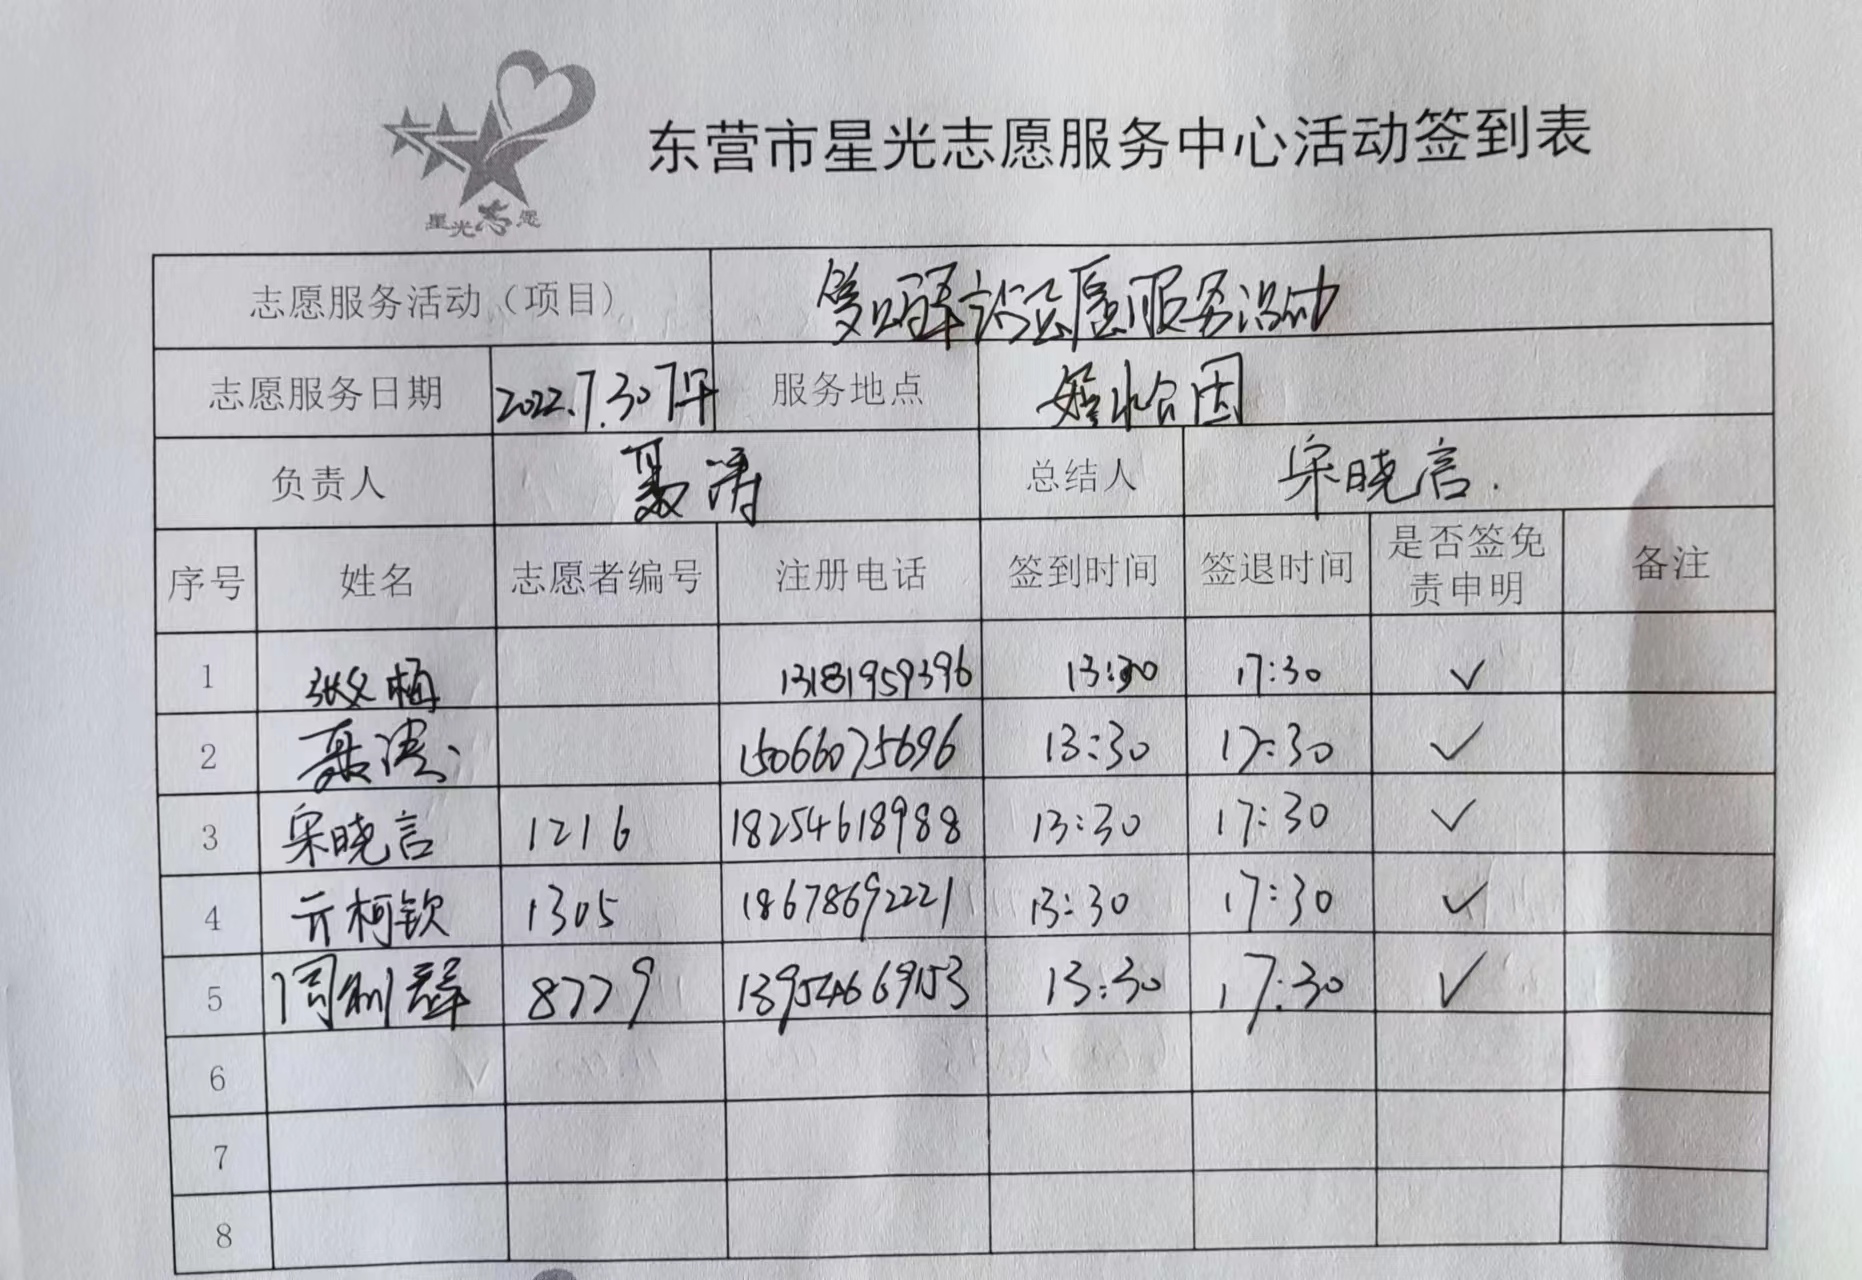 星光志愿
东营市星光志愿服务中心活动签到表
志愿服务活动（项目） 志愿服务活动
志愿服务日期 2022.7.30下午 服务地点
负责人 聂涛 总结人 宋晓言.
序号 姓名 志愿者编号 注册电话 签到时间 签退时间 是否签免责申明 备注
1 13181959396 13:30 17:30 ✓
2 聂涛 15066075696 13:30 17:30 ✓
3 宋晓言 1216 18254618988 13:30 17:30 ✓
4 亓柯钦 1305 18678692221 13:30 17:30 ✓
5 周利群 8779 13954669153 13:30 17:30 ✓
6
7
8